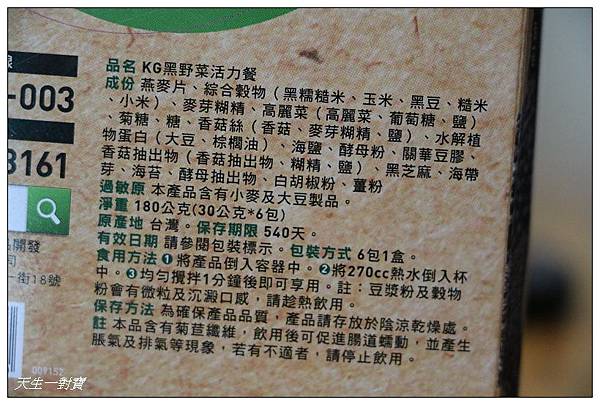 品名 KG黑野菜活力餐
成份 燕麥片、綜合穀物（黑糯糙米、玉米、黑豆、糙米
、小米）、麥芽糊精、高麗菜（高麗菜、葡萄糖、鹽）
、菊糖、糖、香菇絲（香菇、麥芽糊精、鹽）、水解植
物蛋白（大豆、棕櫚油）、海鹽、酵母粉、關華豆膠、
香菇抽出物（香菇抽出物、糊精、鹽）、黑芝麻、海帶
芽、海苔、酵母抽出物、白胡椒粉、薑粉
過敏原 本產品含有小麥及大豆製品。
淨重 180公克(30公克*6包)
原產地 台灣。保存期限 540天。
有效日期 請參閱包裝標示。包裝方式 6包1盒。
食用方法 ❶將產品倒入容器中。❷將270cc熱水倒入杯
中。❸均勻攪拌1分鐘後即可享用。註：豆漿粉及穀物
粉會有微粒及沉澱口感，請趁熱飲用。
保存方法 為確保產品品質，產品請存放於陰涼乾燥處。
註 本品含有菊苣纖維，飲用後可促進腸道蠕動，並產生
脹氣及排氣等現象，若有不適者，請停止飲用。
線
-003
3161
品開發
司
一街18號
009152
天生一對寶